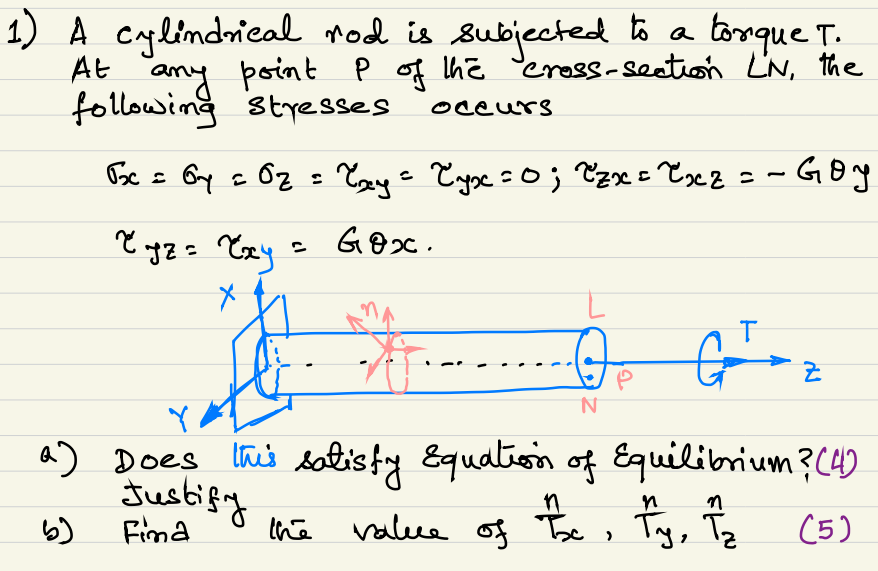 1) A cylindrical rod is subjected to a torque T.
At any point P of the cross-section LN, the
following stresses occurs
σx = σy = σz = τxy = τyx = 0 ; τzx = τxz = - Gθy
τyz = τxy = Gθx.
X
n
L
T
Z
P
Y
N
a) Does this satisfy Equation of Equilibrium? (4)
Justify
b) Find the value of Tⁿx, Tⁿy, Tⁿz (5)